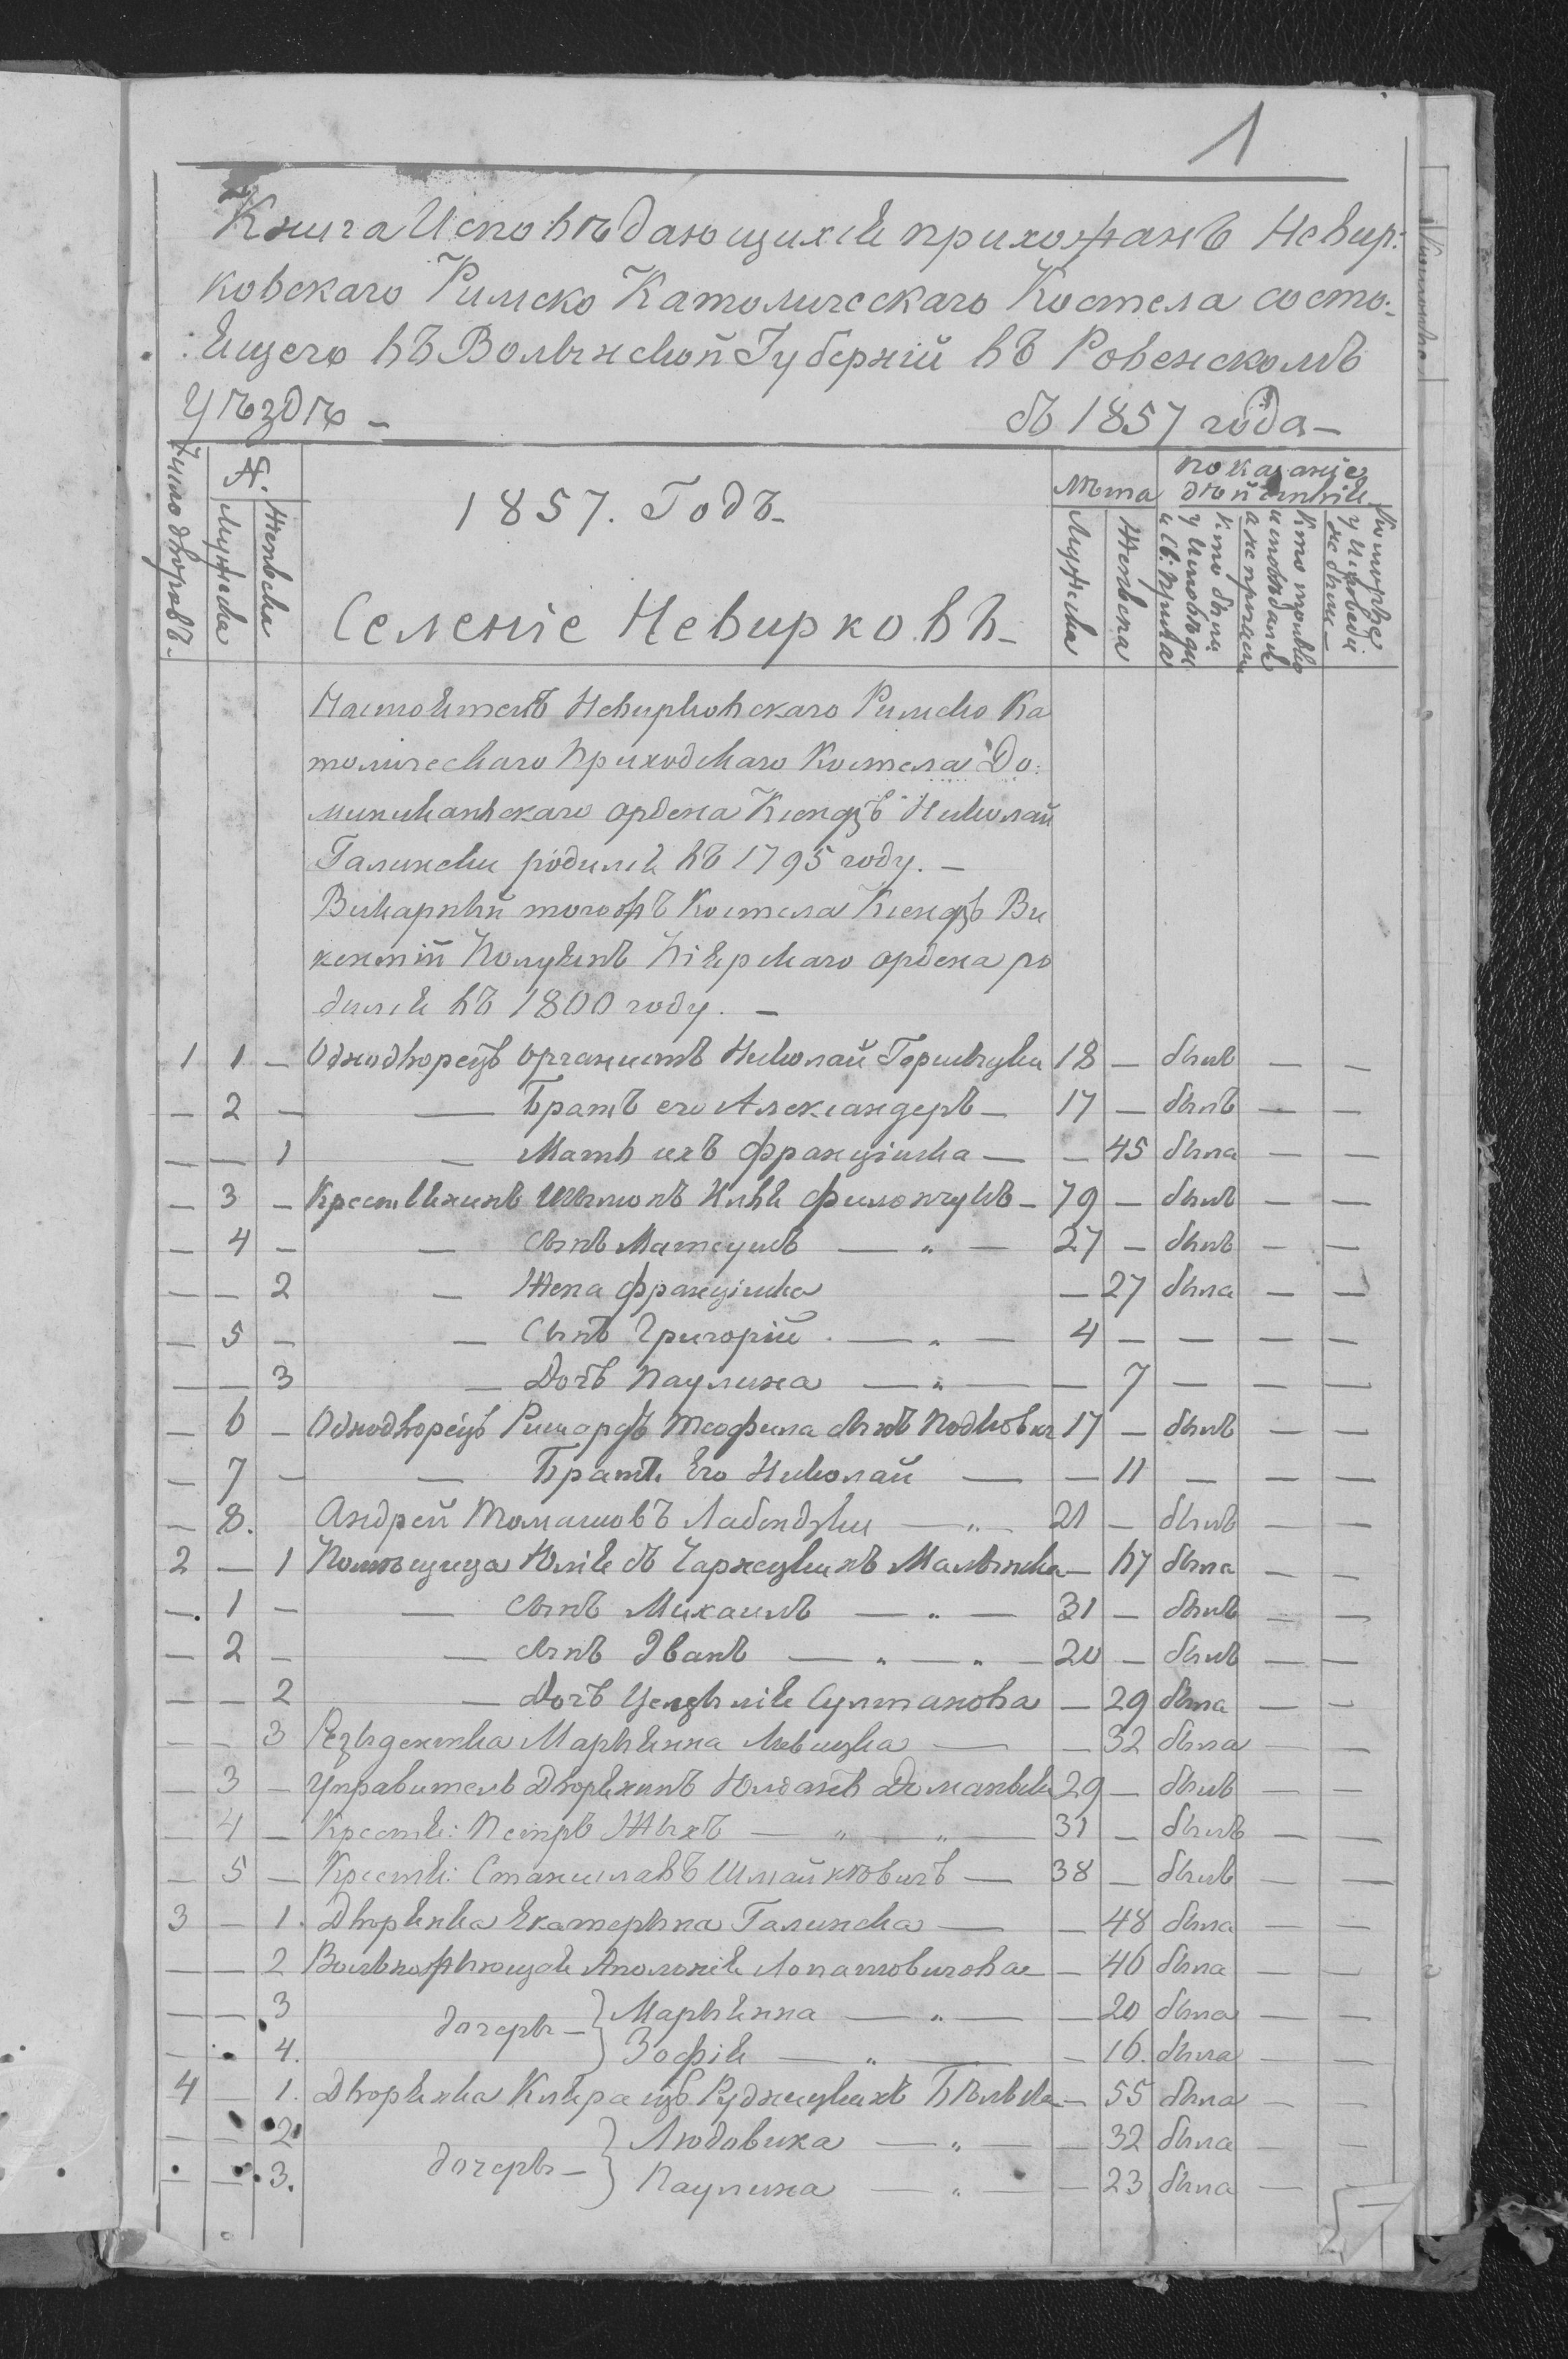 1
Книга Исповѣдающихся прихожанъ Невир:
ковскаго Римско Католическаго Костела состо:
:ящего въ Волынской Губерніи въ Ровенскомъ
Уѣздѣ - съ 1857 года -
Число дворовъ. №. Лѣта показаніе
Мужеска Женска Мужеска Женска
1857. Годъ -
Кто были у Исповѣди и Св: Прича
Кто только исповѣдались а не причащ
Которые у Исповеди не были -
Селеніе Невирковъ -
Настоятель Невирковскаго Римско Ка
толическаго Приходскаго Костела До:
миниканскаго ордена Ксендзъ Николай
Галински родился въ 1795 году. -
Викарный тогожъ Костела Ксендзъ Ви
кентій Піярскаго ордена ро
дился въ 1800 году. -
1 1 - Однодворецъ органистъ Николай 18 - былъ - -
- 2 - - Братъ его Александеръ - 17 - былъ - -
- - 1 - Мать ихъ Францішка - - 45 была - -
- 3 - Крестянинъ Шымонъ Филончукъ - 79 - былъ - -
- 4 - - Сынъ Матеушъ - „ - 27 - былъ - -
- - 2 - Жена Францішка - 27 была - -
- 5 - - Сынъ Григорій - „ - 4 - - - -
- - 3 - Дочъ Паулина - „ - - 7 - - -
- 6 - Однодворецъ Ришардъ Теофила сынъ 17 - былъ - -
- 7 - - Братъ Его Николай - - 11 - - -
- 8. Андрей Томашовъ Лабендзки - „ - 21 - былъ - -
2 - 1 Помѣщица Юлія съ Чарнецкихъ Малынска - 47 была - -
- 1 - - Сынъ Михаилъ - „ - 31 - былъ - -
- 2 - - Сынъ Иванъ - „ - „ - 20 - былъ - -
- - 2 - Дочъ Целцылія Султанова - 29 была - -
- - 3 Резыдентка Марыянна Левицка - - 32 была - -
- 3 - Управитель Дворянинъ 29 - былъ - -
- 4 - Крестя: Петръ Жыхъ - „ - „ - 31 - былъ - -
- 5 - Крестя: Станиславъ - 38 - былъ - -
3 - 1. Дворянка Екатерына Галинска - - 48 была - -
- - 2 Волъножыющая Аполонія Лопатовичова - - 46 была - -
- - 3 дочеры - } Марыянна - „ - - 20 была - -
- - 4. Зофія - „ - - 16. была - -
4 - 1. Дворянка Клара изъ Рудницкихъ Бѣльска - 55 была - -
- - 2 дочеры - } Людовика - „ - - 32 была - -
- - 3. Паулина - „ - - 23 была - -